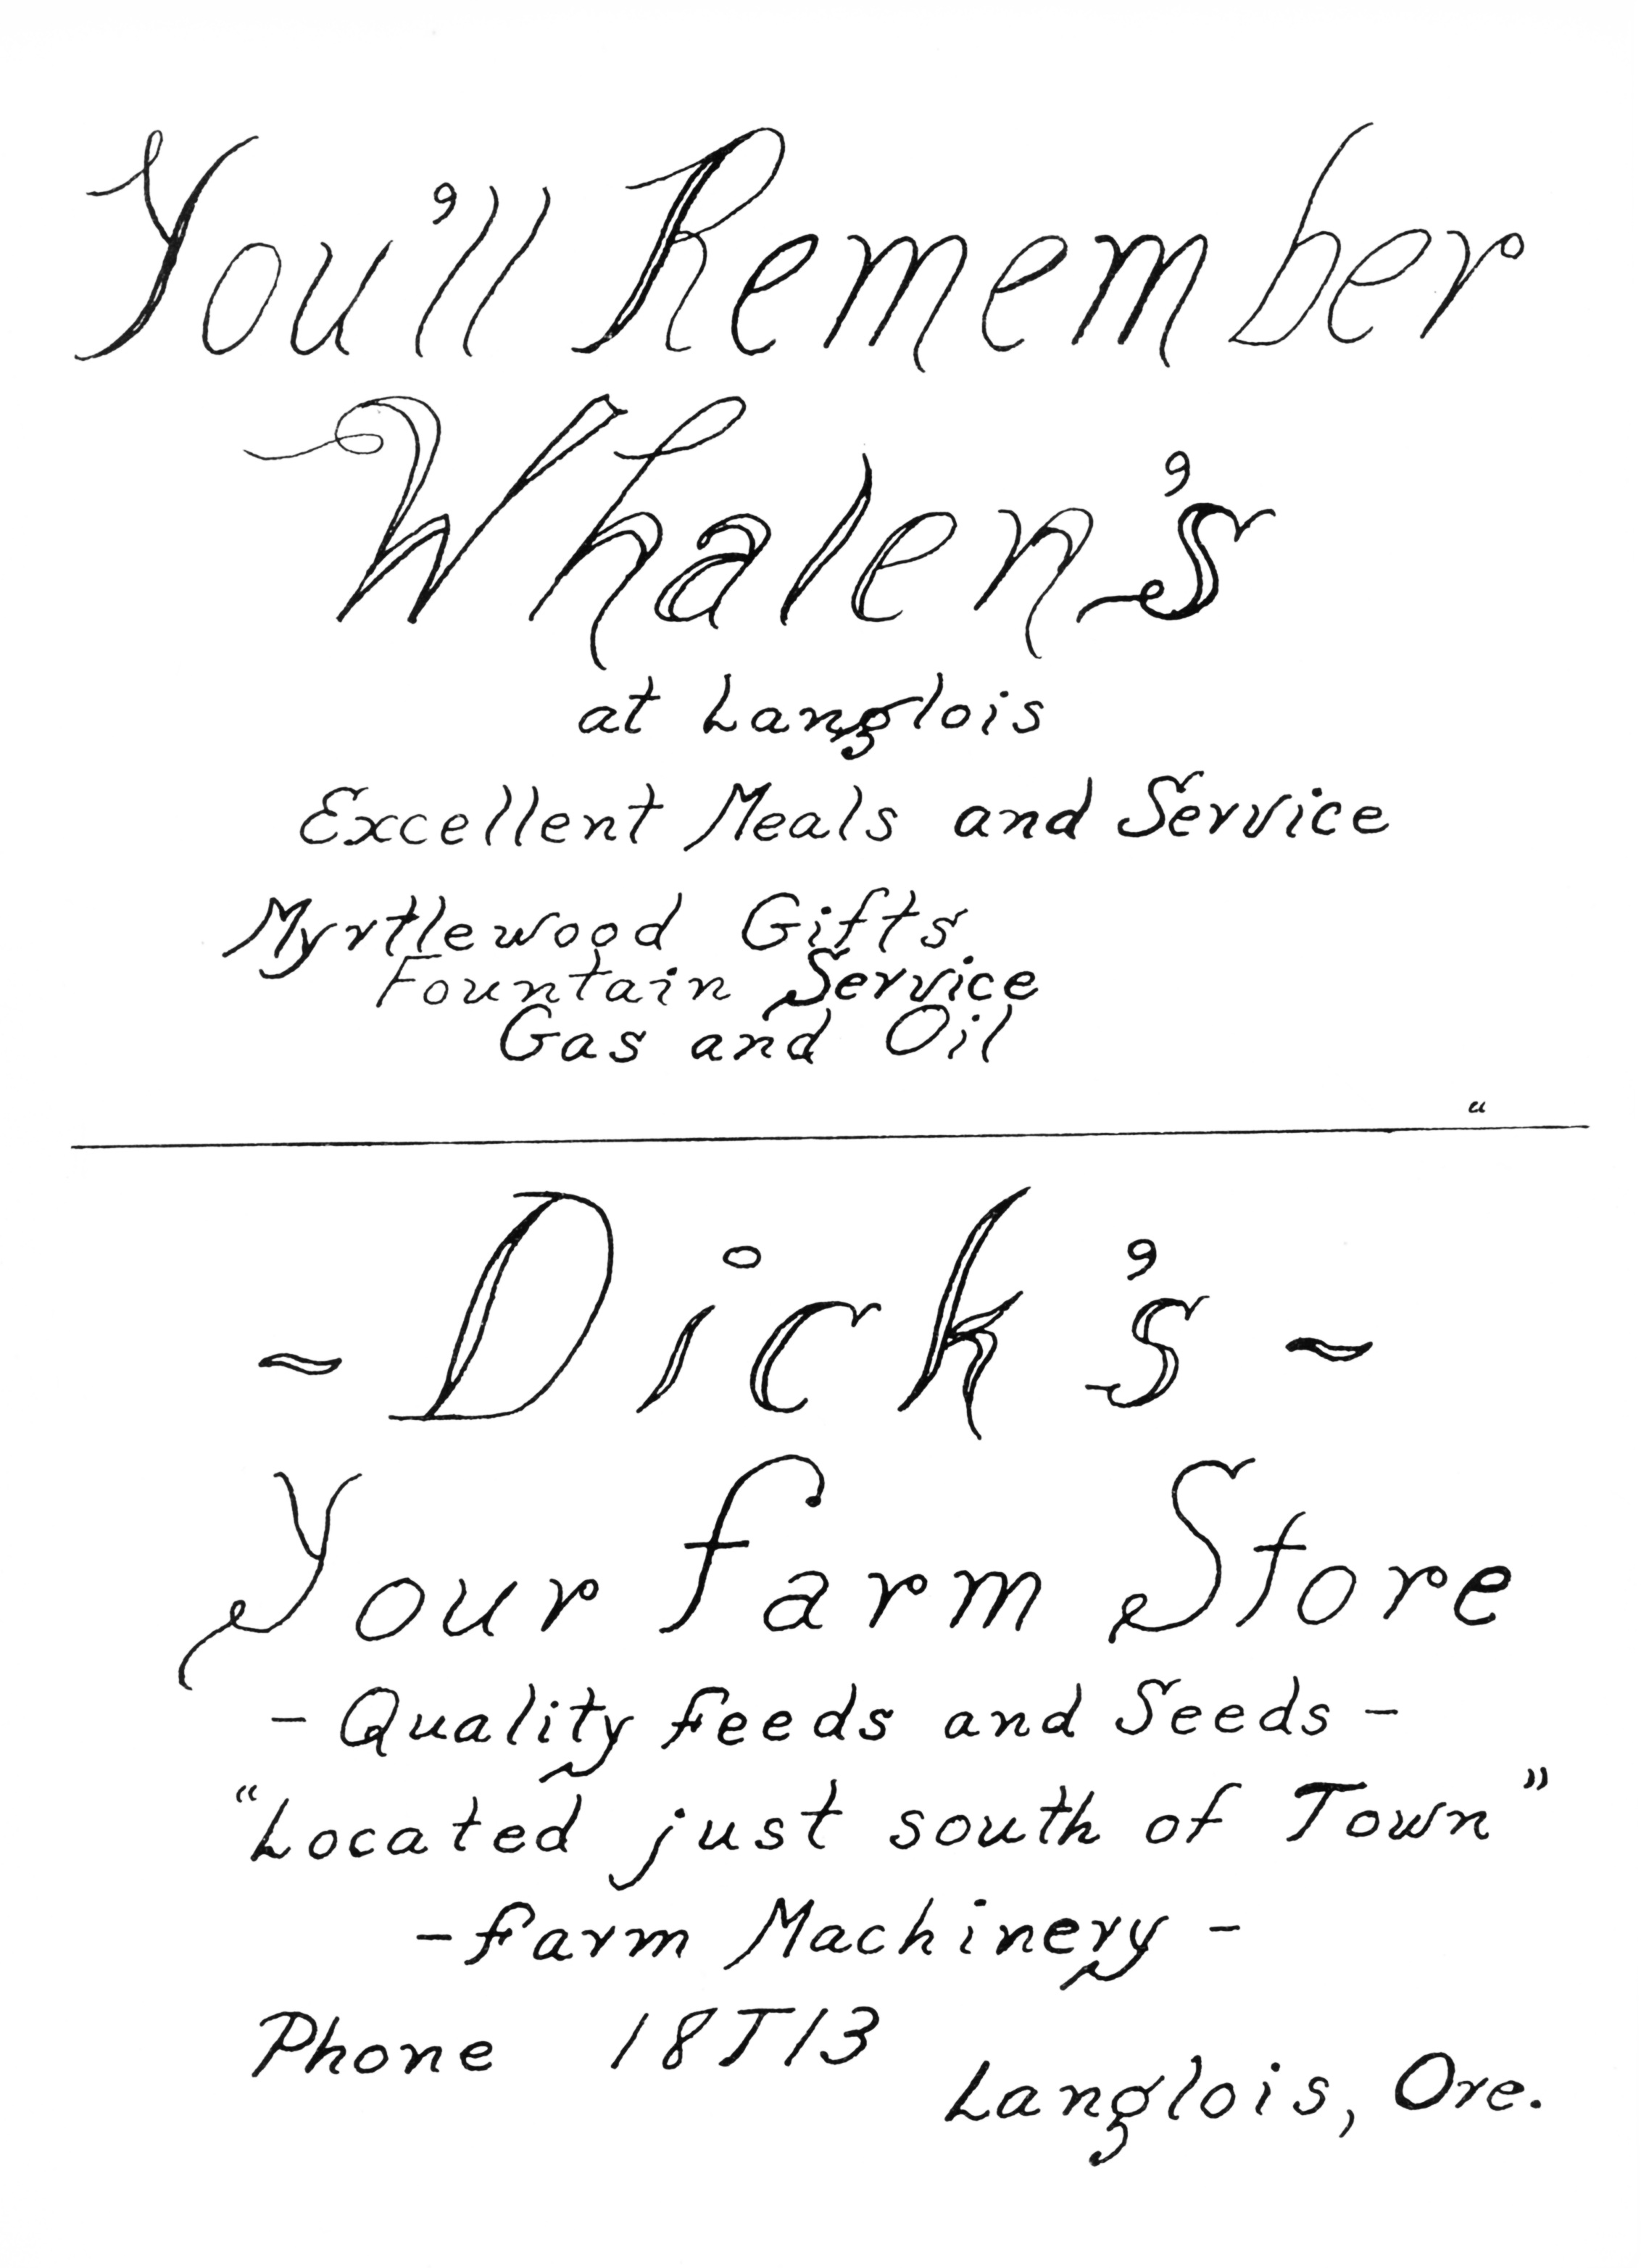 You'll Remember
Whalen's
at Langlois
Excellent Meals and Service
Myrtlewood Gifts
Fountain Service
Gas and Oil
~ Dick's ~
Your Farm Store
- Quality Feeds and Seeds -
“Located just south of Town”
- Farm Machinery -
Phone 18T13
Langlois, Ore.